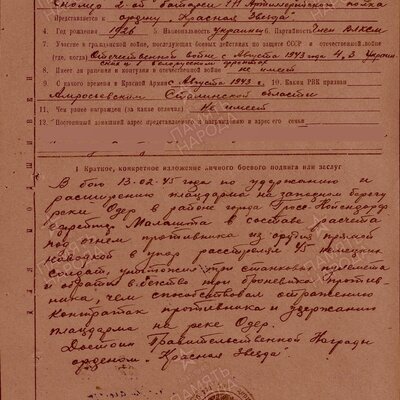 номер 2-ой батареи 1Л Артиллерийского полка
Представляется к ордену „Красная Звезда“
4. Год рождения 1926 5. Национальность украинец 6. Партийность член ВЛКСМ
7. Участие в гражданской войне, последующих боевых действиях по защите СССР и отечественной войне
(где, когда) Отечественной войне с Августа 1943 года 4, 3 Украин-
ский и Белорусском фронтах
8. Имеет ли ранения и контузии в отечественной войне не имеет
9. С какого времени в Красной Армии с Августа 1943 г. 10. Каким РВК призван
Амвросиевским Сталинской области
11. Чем ранее награжден (за какие отличия) Не имеет
12. Постоянный домашний адрес представляемого к награждению и адрес его семьи
I. Краткое, конкретное изложение личного боевого подвига или заслуг
В бою 13.02.45 года по удержанию и
расширению плацдарма на западном берегу
реки Одер в районе города Гросс-Нойендорф
Малашта в составе расчета
под огнем противника из орудия прямой
наводкой в упор расстрелял 45 немецких
солдат, уничтожил три станковых пулемета
и обратил в бегство три броневика против-
ника, чем способствовал отражению
контратак противника и удержанию
плацдарма на реке Одер.
Достоин Правительственной Награды
орденом „Красная Звезда“
ПАМЯТЬ
НАРОДА